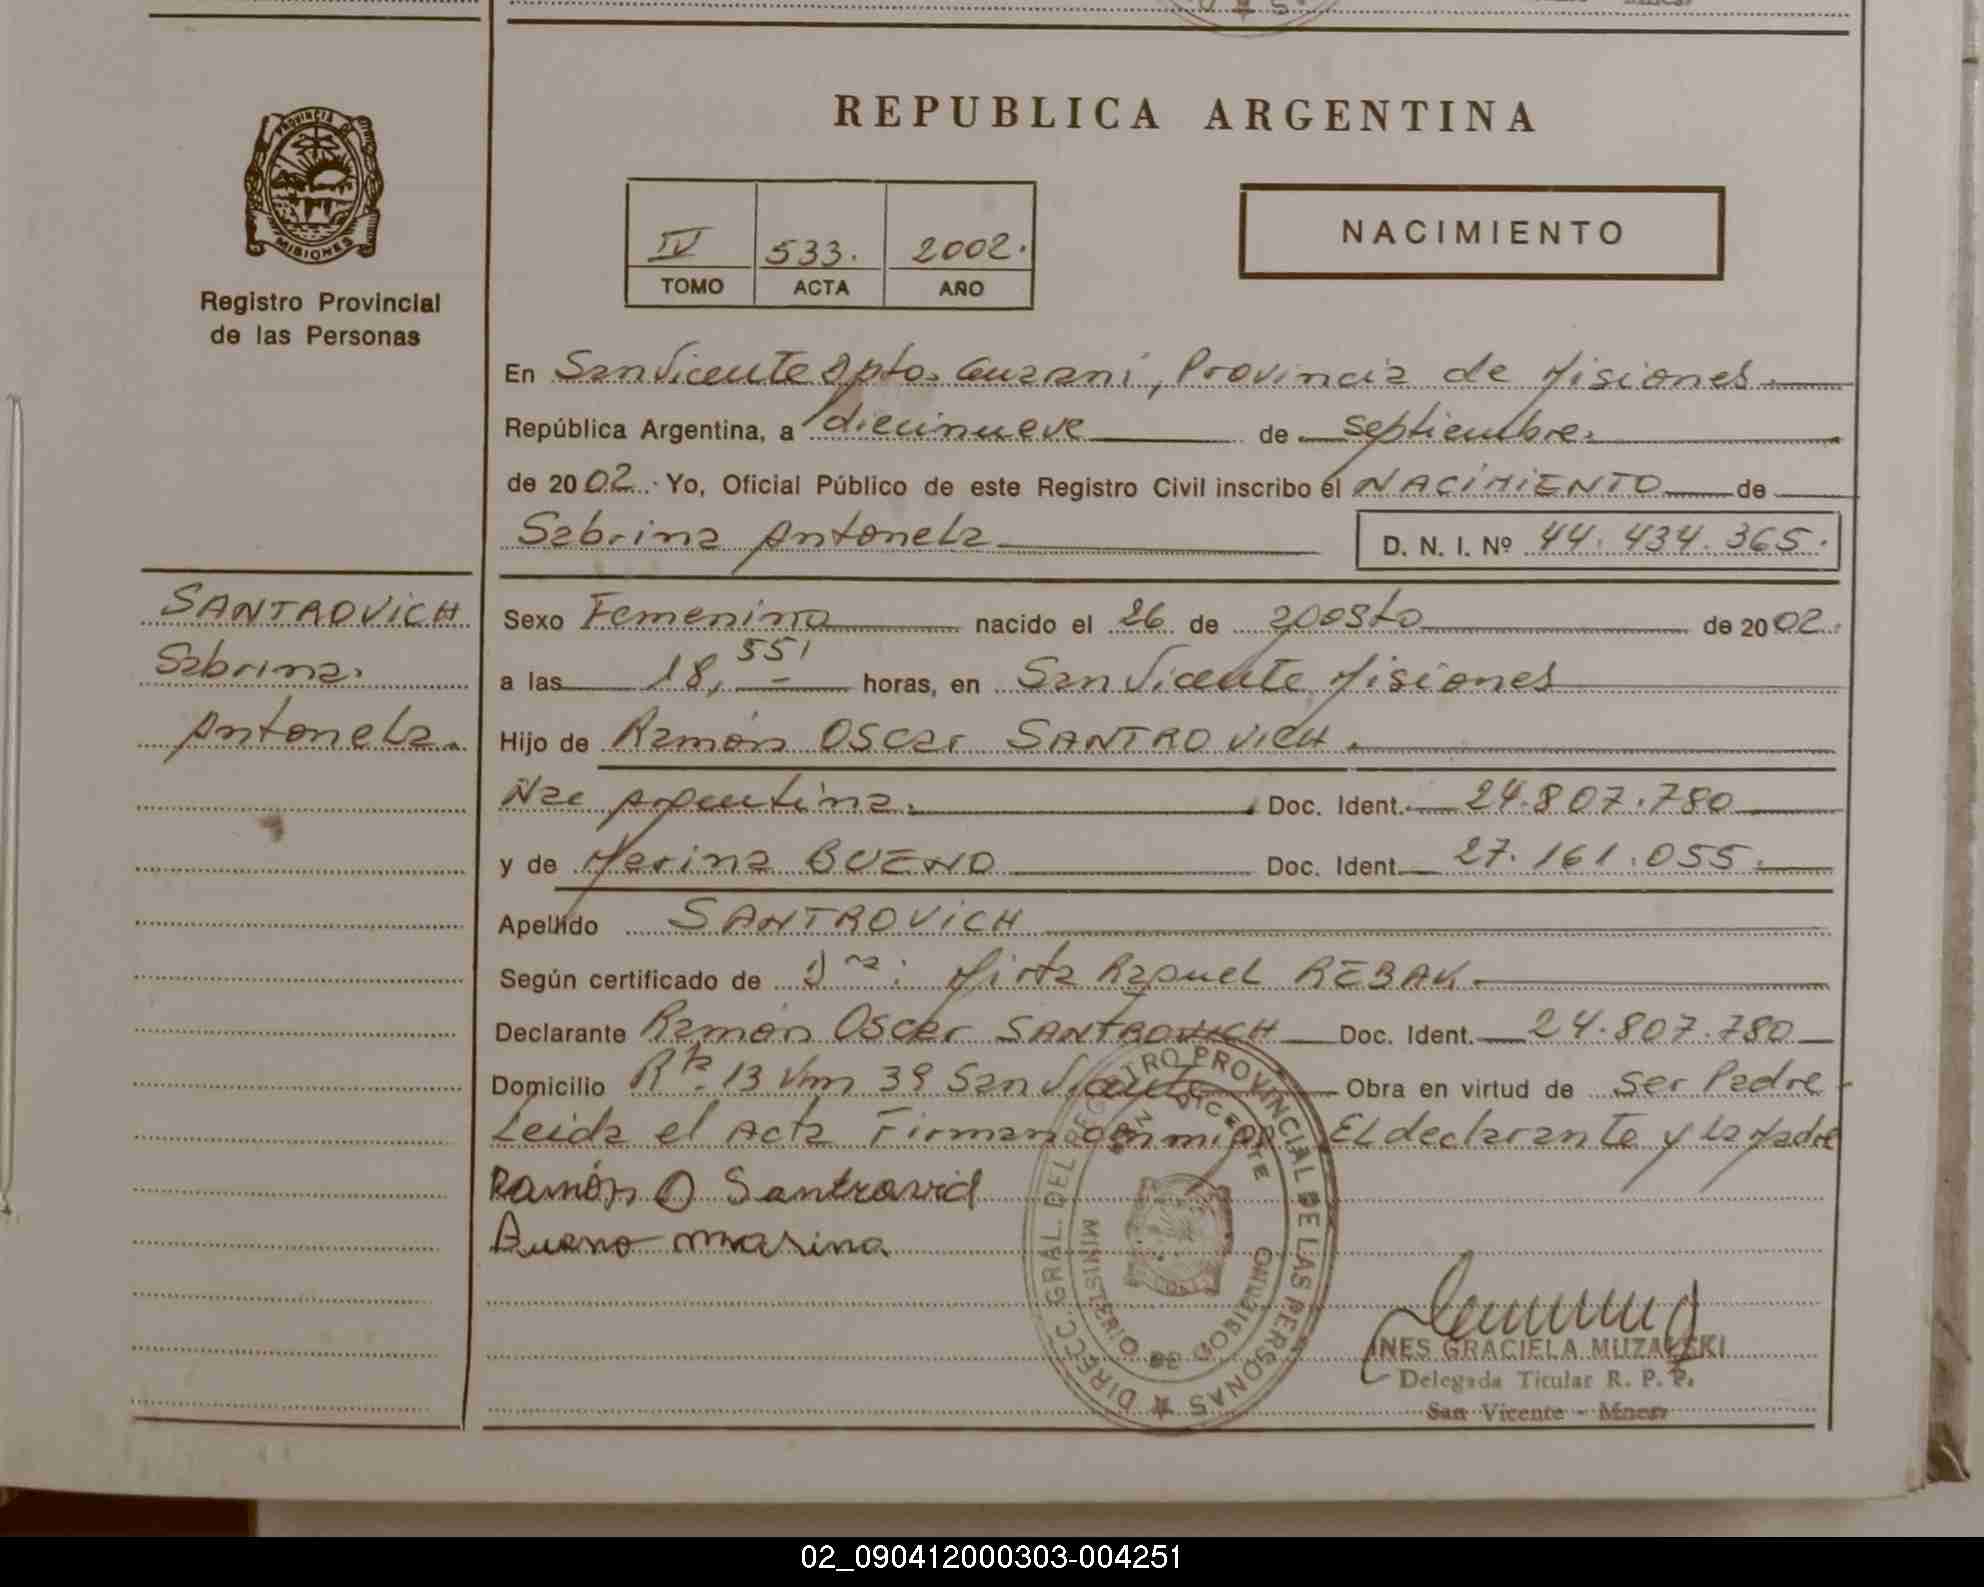 REPUBLICA ARGENTINA
PROVINCIA DE
MISIONES
Registro Provincial
de las Personas
IV 533. 2002.
TOMO ACTA AÑO
NACIMIENTO
En San Vicente Dpto. Guarani, Provincia de Misiones.
República Argentina, a diecinueve de septiembre.
de 2002. Yo, Oficial Público de este Registro Civil inscribo el NACIMIENTO de
Sabrina Antonela D. N. I. Nº 44.434.365.
SANTROVICH
Sabrina.
Antonela.
Sexo Femenino nacido el 26 de agosto de 2002.
a las 18,55' horas, en San Vicente Misiones
Hijo de Ramón Oscar SANTROVICH.
Nac Argentina. Doc. Ident. 24.807.780
y de Marina BUENO Doc. Ident. 27.161.055.
Apellido SANTROVICH
Según certificado de Dra: Mirta Raquel REBAK.
Declarante Ramón Oscar SANTROVICH Doc. Ident. 24.807.780
Domicilio Rta. 13 Km 39 San Vicente Obra en virtud de ser Padre
Leida el Acta Firman El declarante y La Madre
Ramón O Santrovich
Bueno marina
DIRECC. GRAL. DEL REGISTRO PROVINCIAL DE LAS PERSONAS
SAN VICENTE
MINISTERIO DE GOBIERNO
INES GRACIELA MUZALSKI
Delegada Titular R. P. P.
San Vicente - Mnes.
02_090412000303-004251